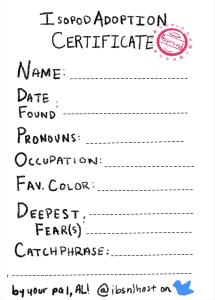 ISOPOD ADOPTION
CERTIFICATE
NAME:
DATE
FOUND:
PRONOUNS:
OCCUPATION:
FAV. COLOR:
DEEPEST,
FEAR(S):
CATCHPHRASE:
by your pal, AL! @ibsnlhost on